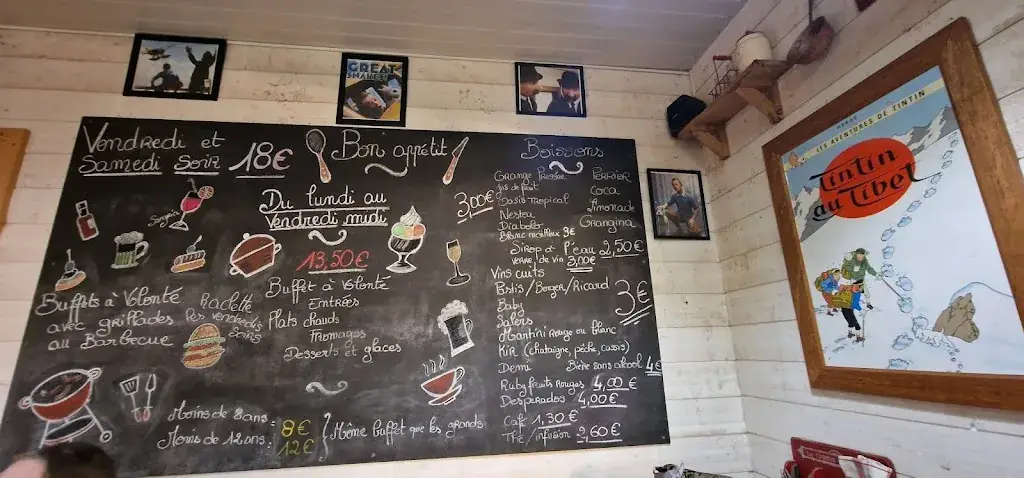 Vendredi et
Samedi Soir 18€
Sangria
Buffets à Volonté
avec grillades
au Barbecue
Raclette
les vendredis
soirs
Bon appétit
Du lundi au
Vendredi midi
13,50€
Buffet à Volonté
Entrées
Plats chauds
Fromages
Desserts et glaces
Moins de 8 ans : 8€
Moins de 12 ans : 12€
Même buffet que les grands
Boissons
3,00€
Orange Pressée
Jus de fruit
Oasis tropical
Nestea
Diabolo
Blanc moelleux 3€
Perrier
Coca
Limonade
Orangina
Sirop à l'eau 2,50€
Verre de vin 3,00€
Vins cuits
Pastis/Berger/Ricard
Baby
Salers
Martini Rouge ou blanc
Kir (chataigne, pêche, cassis)
3€
Demi Bière sans alcool 4€
Ruby fruits Rouges 4,00€
Desperados 4,00€
Café 1,30€
Thé/infusion 2,60€
GREAT
SNAKES
HERGÉ
LES AVENTURES DE TINTIN
Tintin
au Tibet